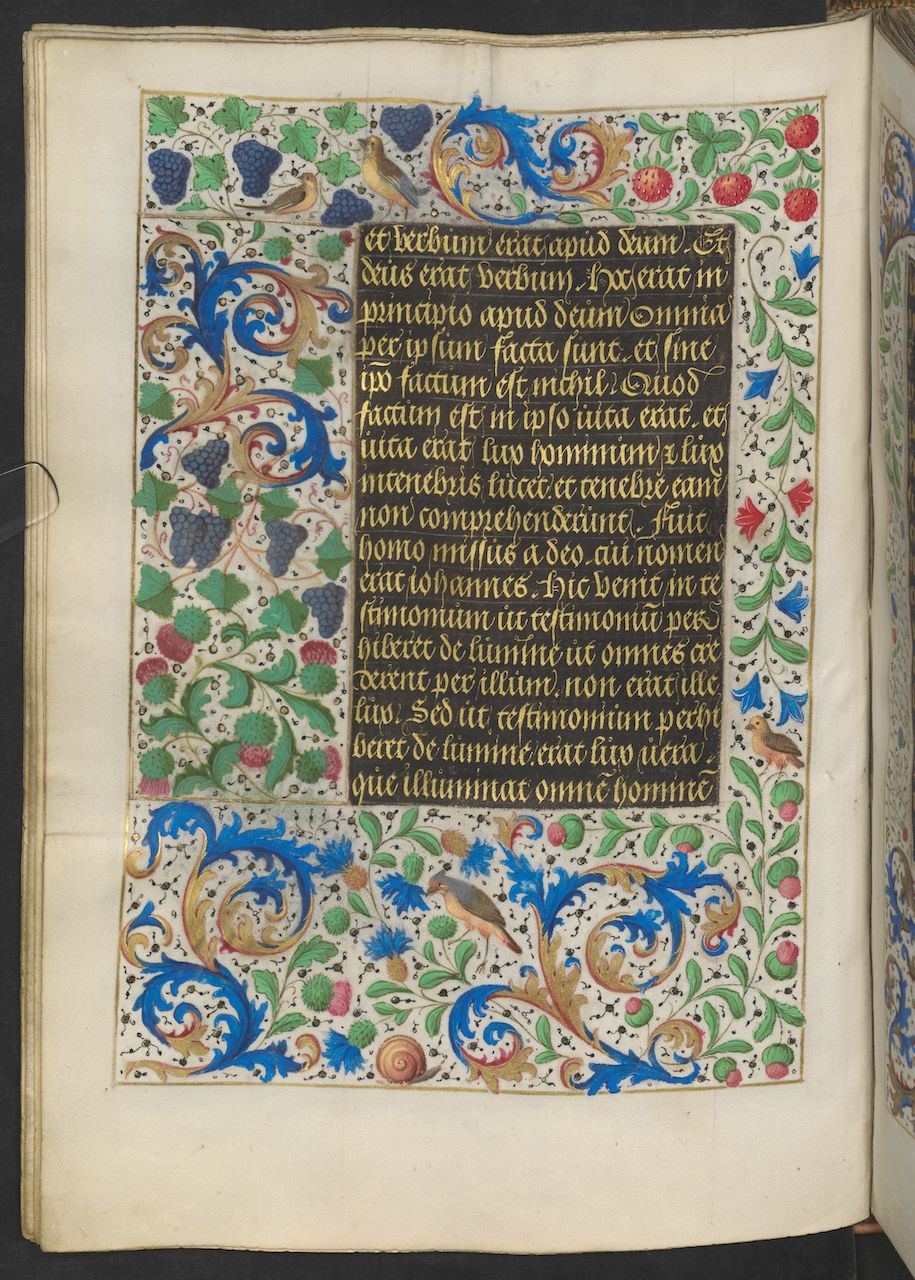 et verbum erat apud deum. Et
deus erat verbum. Hoc erat in
principio apud deum Omnia
per ipsum facta sunt. et sine
ip̄o factum est nichil. Quod
factum est in ipso uita erat. et
uita erat lux hominum & lux
intenebris lucet et tenebre eam
non comprehenderunt. Fuit
homo missus a deo. cui nomen
erat iohannes. Hic venit in te
stimonium ut testimoniū per
hiberet de lumine ut omnes cre
derent per illum. non erat ille
lux. Sed ut testimonium perhi
beret de lumine erat lux uera
que illuminat omnē hominē